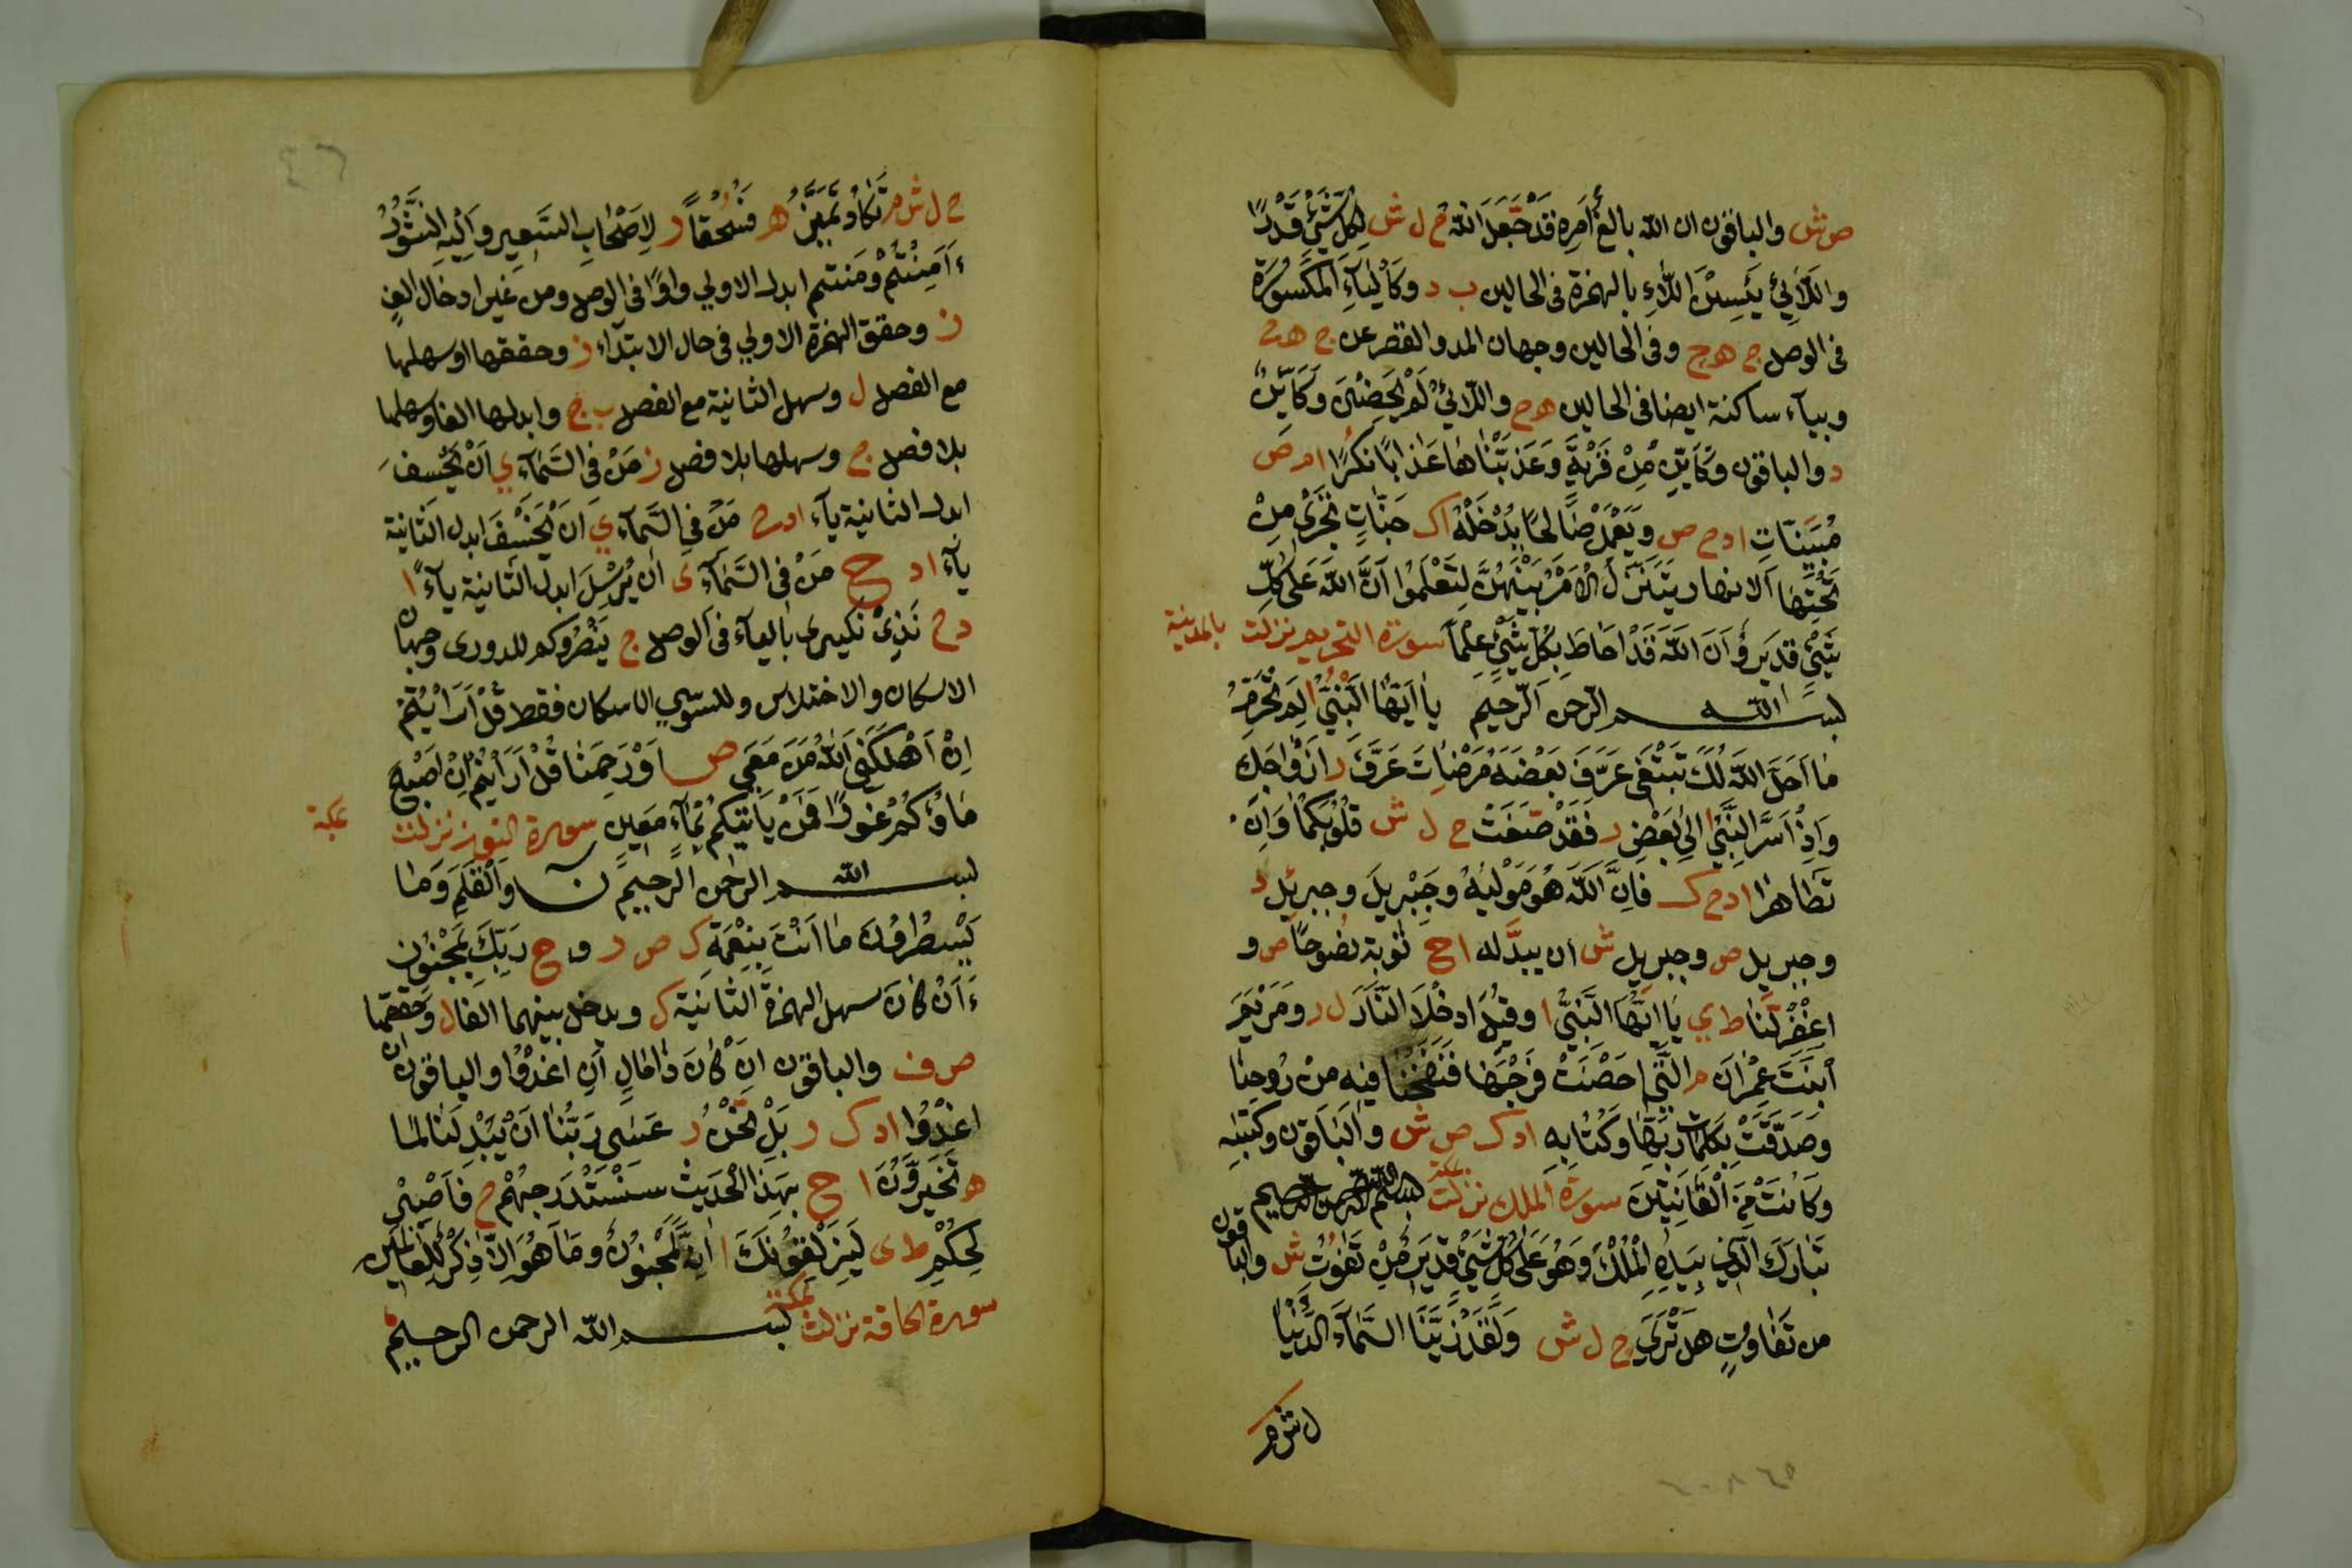 ص ش والباقون ان الله بالغ أمره قَدْ جَعَلَ اللّهُ ح ل ش لِكُلِّ شَيْءٍ قَدْرًا
واللَّائِي يَئِسْنَ اللَّاءِ بالهمزة فى الحالين ب د وكاليَاءِ المكسُورَة
فى الوصل ج ه ح وفى الحالين وجهان المد والقصر عن ج ه ح
وبياء ساكنة ايضا فى الحالين ه ح واللّائي لَمْ يَحِضْنَ وَكَايِّنْ
د والباقون وَكَأَيِّن مِنْ قَرْيَةٍ وَعَذَّبْنَاهَا عَذَابًا نُكْرًا ا م ص
مُبَيَّنَاتٍ ا د ح ص وَيَعْمَلْ صَالِحًا نُدْخِلْهُ ا ك جَنَّاتٍ تَجْرِي مِنْ
تَحْتِهَا الانهار يَتَنَزَّلُ الْاَمْرُ بَيْنَهُنَّ لِتَعْلَمُوا اَنَّ اللّهَ عَلَى كُلِّ
شَيْءٍ قَدِيرٌ وَاَنَّ اللّهَ قَدْ اَحَاطَ بِكُلِّ شَيْءٍ عِلْمًا سورة التحريم نزلت بالمدينة
بسم الله الرحمن الرحيم يَا اَيُّهَا النَّبِيُّ ا لِمَ تُحَرِّمُ
مَا اَحَلَّ اللّهُ لَكَ تَبْتَغِى عَرَّفَ بَعْضَهُ مَرْضَاتَ عَرَفَ ر اَزْوَاجِكَ
وَاِذْ اَسَرَّ النَّبِيُّ ا اِلَى بَعْضِ ر فَقَدْ صَغَتْ ح ل ش قُلُوبُكُمَا وَاِنْ
تَظَّاهَرَا ا د ح ك فَاِنَّ اللّهَ هُوَ مَوْلَيهُ وَجِبْرِيلَ وجبرئيل د
وجبريل ص وجبريل ش ان يبدّله ا ح توبة نصُوحًا ص و
اغْفِرْ لَنَا ط ي يَا اَيُّهَا النَّبِيُّ ا وَقِيلَ ادْخُلَا النَّارَ ل ر وَمَرْيَمَ
ابْنَتَ عِمْرَانَ م الَّتِي اَحْصَنَتْ فَرْجَهَا فَنَفَخْنَا فِيهِ مِنْ رُوحِنَا
وَصَدَّقَتْ بِكَلِمَاتِ رَبِّهَا وَكِتَابِهِ ا د ك ص ش والبَاقون وكتبه
وَكَانَتْ مِنَ الْقَانِتِينَ سورة الملك نزلت بمكة بسم الله الرحمن الرحيم
تَبَارَكَ الَّذِي بِيَدِهِ الْمُلْكُ وَهُوَ عَلَى كُلِّ شَيْءٍ قَدِيرٌ مِنْ تَفَوُّتٍ ش والباقون
من تَفَاوُتٍ هَلْ تَرَى ح ل ش وَلَقَدْ زَيَّنَّا السَّمَاءَ الدُّنْيَا
ل ش م
٤٦
ح ل ش م تَكَادُ تَمَيَّزُ ه فَسُحْقًا ر لِاَصْحَابِ السَّعِيرِ وَاِلَيْهِ النُّشُورُ
ءَاَمِنْتُمْ وَمَنتم ابدل الاولي واوًا فى الوصل ومن غير ادخال الف
ز وحقق الهمزة الاولي فى حال الابتداء ز وحققها او سهلها
مع الفصل ل وسهل الثانية مع الفصل ب ح وابدلها الفا وسهلها
بلا فصل ج وسهلها بلا فصل ز مَنْ فى السَّمَاءِ ي اَنْ يَخْسِفَ
ابدل الثانية ياء ا د ح مَنْ فِى السَّمَاءِ ي اَنْ يَخْسِفَ ابدل الثانية
ياء ا د ح مَنْ فِى السَّمَاءِ ى اَنْ يُرْسِلَ ابدل الثانية ياءً ا
د ح نَذِيرِ نَكِيرِى بالياء فى الوصل ج يَنْصُرُوكم للدورى وجهان
الاسكان والاختلاس وللسّوسي الاسكان فقط قُلْ اَرَاَيْتُمْ
اِنْ اَهْلَكَنِيَ اللّهُ وَمَنْ مَعِيَ ص اَوْ رَحِمَنَا قُلْ اَرَاَيْتُمْ اِنْ اَصْبَحَ
مَاؤُكُمْ غَوْرًا فَمَنْ يَاْتِيكُمْ بِمَاءٍ مَعِينٍ سورة النون نزلت بمكة
بسم الله الرحمن الرحيم ن وَالْقَلَمِ وَمَا
يَسْطُرُونَ مَا اَنْتَ بِنِعْمَةِ ك ص ر و ح رَبِّكَ بِمَجْنُونٍ
ءَاَنْ كَانَ سهل الهمزة الثانية ك ويدخل بينهما الفا ل وحققهما
ص ف والباقون اَنْ كَانَ ذَا مَالٍ اَنِ اغْدُوا والباقون ان
اغْدُوا ا د ك ر بَلْ نَحْنُ ر عَسَى رَبُّنَا اَنْ يُبْدِلَنَا لما
ه تَخَيَّرُونَ ا ح بِهَذَا الْحَدِيثِ سَنَسْتَدْرِجُهُمْ ح فَاصْبِرْ
لِحُكْمِ ط ى لَيُزْلِقُونَكَ ا اِنَّهُ لَمَجْنُونٌ وَمَا هُوَ اِلَّا ذِكْرٌ لِلْعَالَمِينَ
سورة الحاقة نزلت بمكة بسم الله الرحمن الرحيم